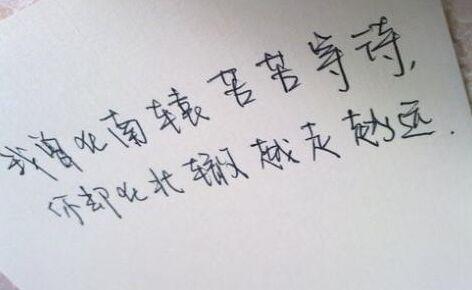 我曾在南辕苦苦等待，
你却在北辙越走越远.